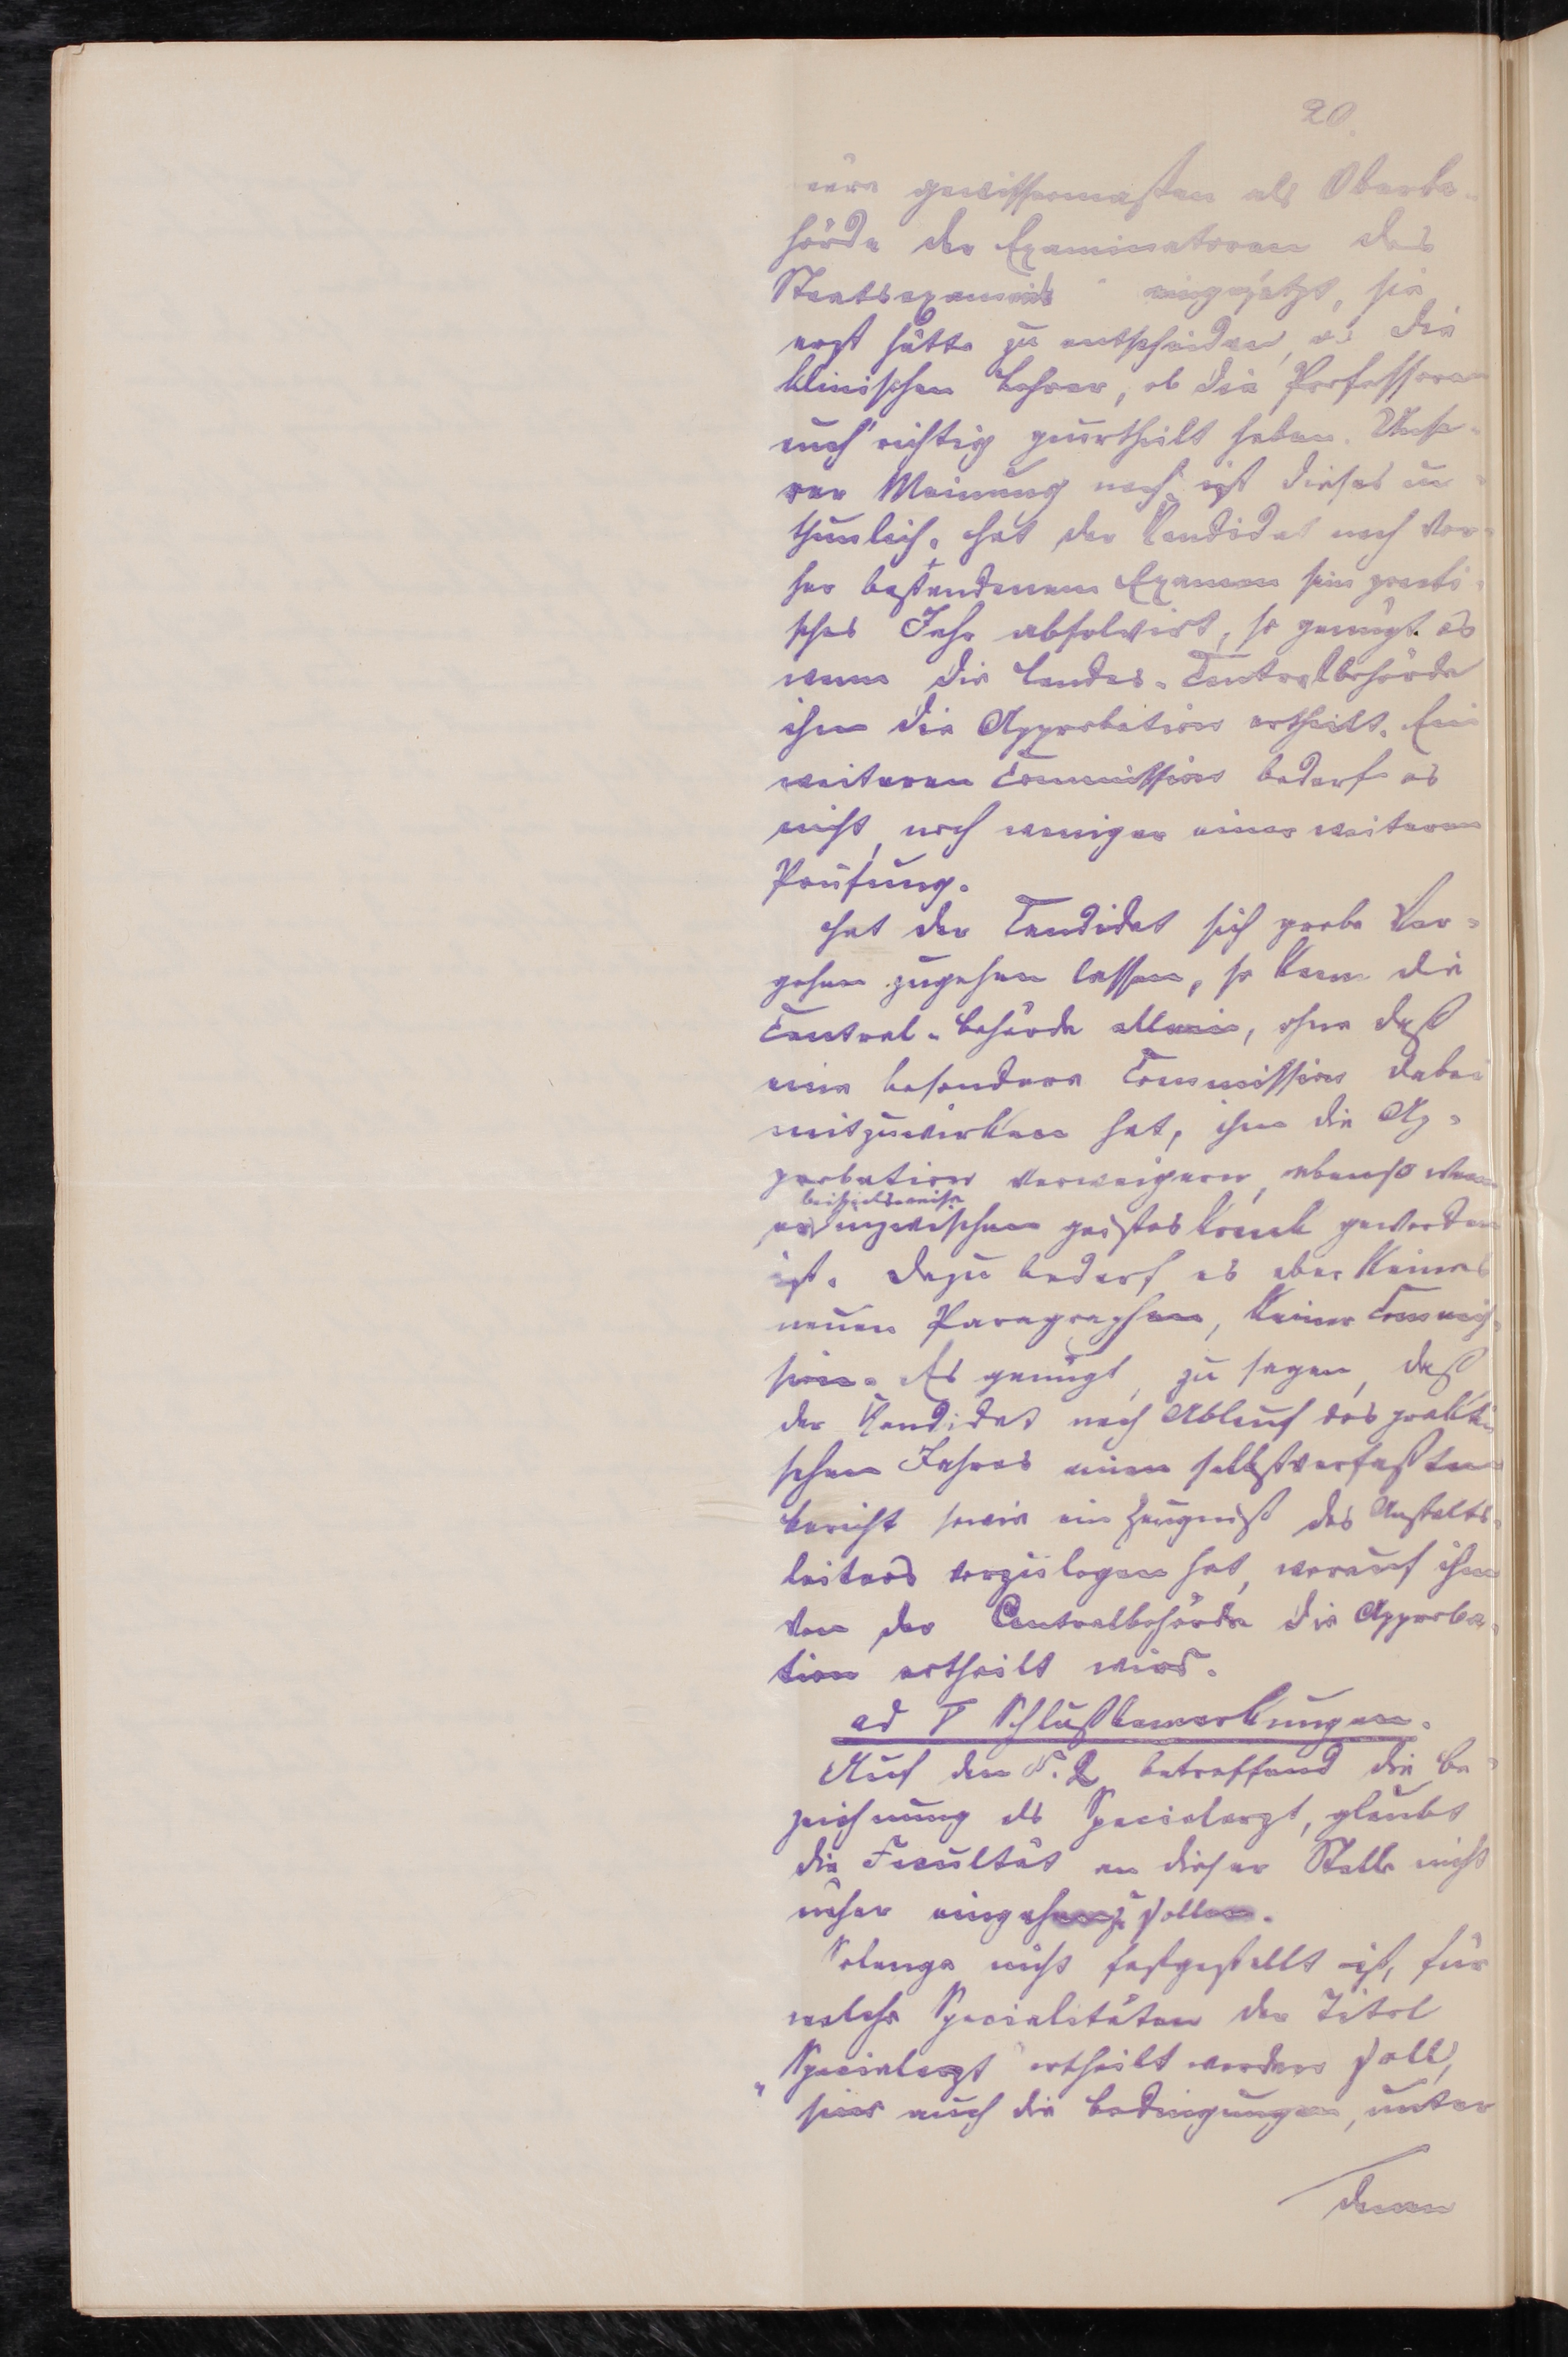 20.
wäre gewissermaßen als Oberbe-
hörde der Examinatoren des
Staatsexamens eingesetzt, sie
erst hätte zu entscheiden, ob die
klinischen Lehrer, ob die Professoren
auch richtig geurtheilt haben. Unse-
rer Meinung nach ist dieses un-
thunlich. Hat der Kandidat nach vor-
her bestandenem Examen sein practi-
sches Jahr absolvirt, so genügt es
wenn die Landes-Centralbehörde
ihm die Approbation ertheilt. Ein
weiteren Commission bedarf es
nicht, noch weniger einer weiteren
Prüfung.
Hat der Candidat sich grobe Ver-
gehen zugehen lassen, so kann die
Central-Behörde allein, ohne daß
eine besondere Commission dabei
mitzuwirken hat, ihm die Ap-
probation verweigern, ebenso wenn
beispielsweise
er inzwischen geisteskrank geworden
ist. Dazu bedarf es aber keines
neuen Paragraphen, keiner Commis-
sion. Es genügt, zu sagen, daß
der Kandidat nach Ablauf des prakti-
schen Jahres einen selbstverfaßten
Bericht sowie ein Zeugniß des Anstalts-
leiters vorzulegen hat, worauf ihm
von der Centralbehörde die Approba-
tion ertheilt wird.
ad V Schlußbemerkungen.
Auf den §. 2 betreffend die Be-
zeichnung als Specialarzt, glaubt
die Facultät an dieser Stelle nicht
näher eingehen zu sollen.
Solange nicht festgestellt ist, für
welche Specialitäten der Titel
„Specialarzt" ertheilt werden soll,
sowie auch die Bedingungen, unter
denen